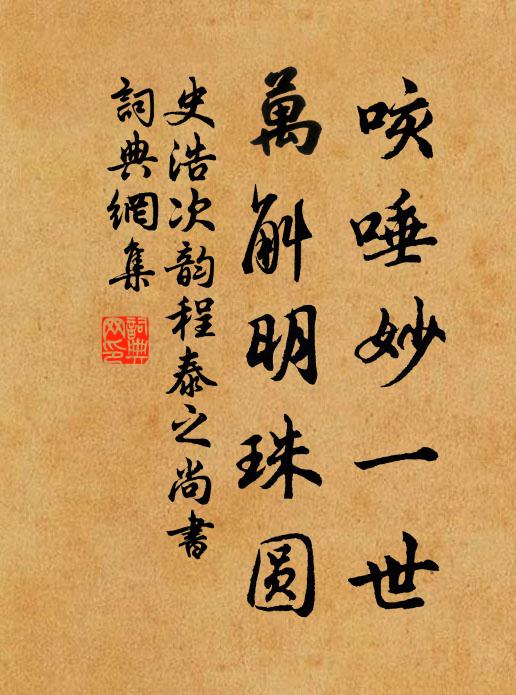 咳唾妙一世
萬斛明珠圆
史浩次韵程泰之尚書
詞典網集
詞典网印